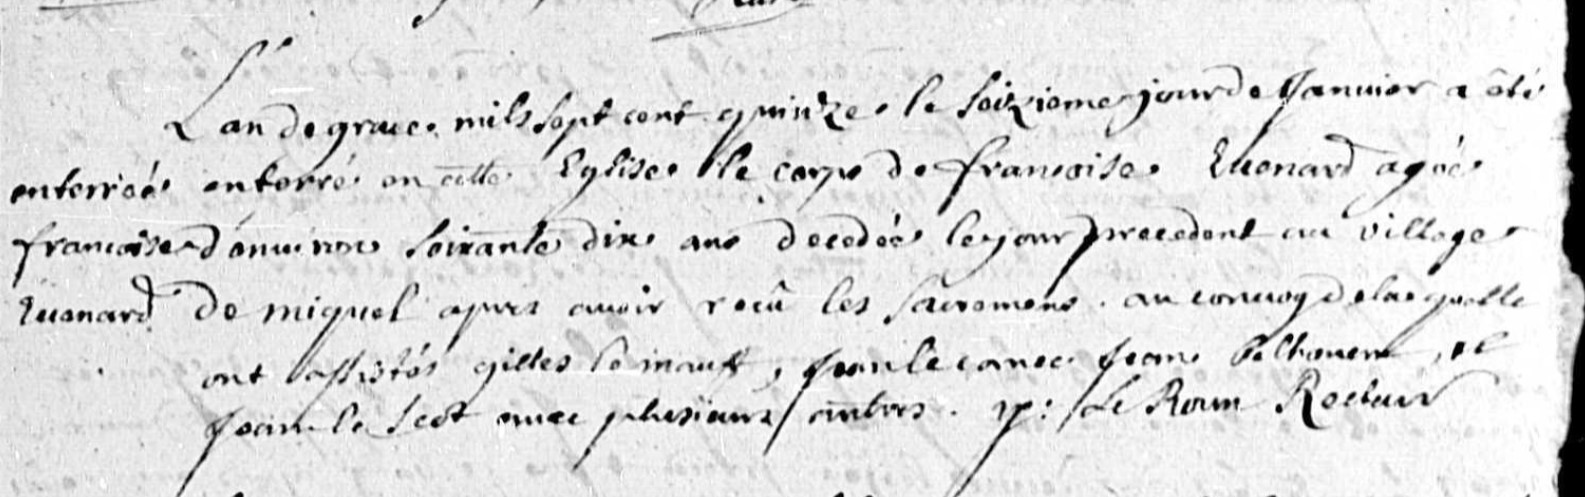 L'an de grace mils sept cent quinze le seizieme jour de Janvier a été
enterreé enterré en cette Eglise le corps de francoise Euenard agée
francoise d'enuiron soixante dix ans decedée le jour precedent au village
Euenard de miquel apres auoir recu les sacremens. au conuoy de laquelle
ont assistés gilles le, jean le jean et
jean le Scot auec plusieurs autres. y: Le Roux Recteur